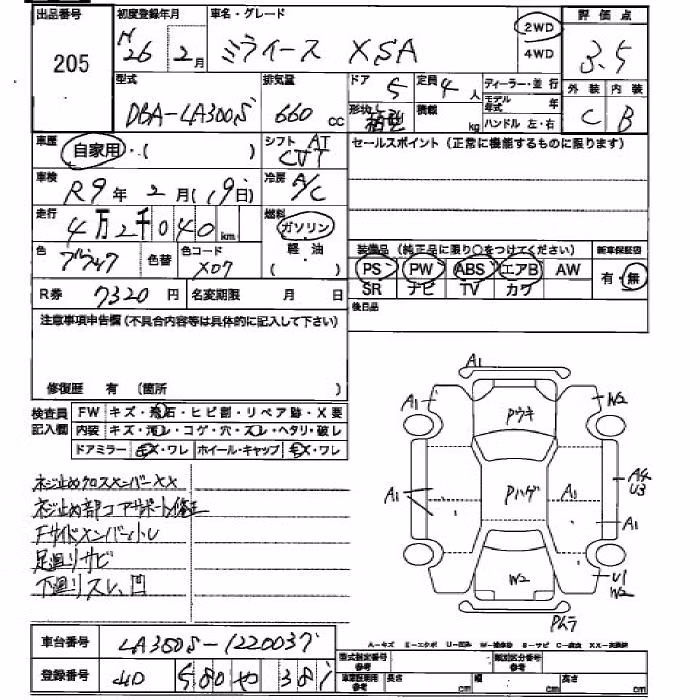 出品番号 初度登録年月 車名・グレード 評価点
205 H26年2月 ミライース XSA 2WD 4WD 3.5
型式 排気量 ドア 5 定員 4人 ディーラー・並行 外装 内装
DBA-LA300S 660cc 形状 箱型 積載 kg モデル年式 年 ハンドル 左・右 C B
車歴 自家用・( ) シフト AT CVT セールスポイント(正常に機能するものに限ります)
車検 R9年2月(19日) 冷房 A/C
走行 4万2千040km 燃料 ガソリン 軽油 ( )
装備品(純正品に限り○をつけてください) 新車保証書
色 ブラック 色替 色コード X07 PS PW ABS エアB AW 有・無
SR ナビ TV カワ
R券 7320円 名変期限 月 日 後日品
注意事項申告欄(不具合内容等は具体的に記入して下さい)
修復歴 有 (箇所 )
検査員記入欄 FW キズ・飛石・ヒビ割・リペア跡・X要
内装 キズ・汚レ・コゲ・穴・スレ・ヘタリ・破レ
ドアミラー キズ・ワレ ホイール・キャップ キズ・ワレ
ネジ止めクロスメンバーXX
ネジ止め部コアサポート修正
Fサイドメンバー小U
足廻リサビ
下廻リスレ、凹
A1
A1 W2
Pウキ
A1 Pハゲ A1 A4 U3
A1
W2 U1 W2
Pムラ
車台番号 LA300S-1220037
A-キズ E-エクボ U-凹み W-補修跡 S-サビ C-腐食 XX-交換済
型式指定番号 参考 類別区分番号 参考
登録番号 40 580 や 381
車検証専用 参考 長さ cm 幅 cm 高さ cm